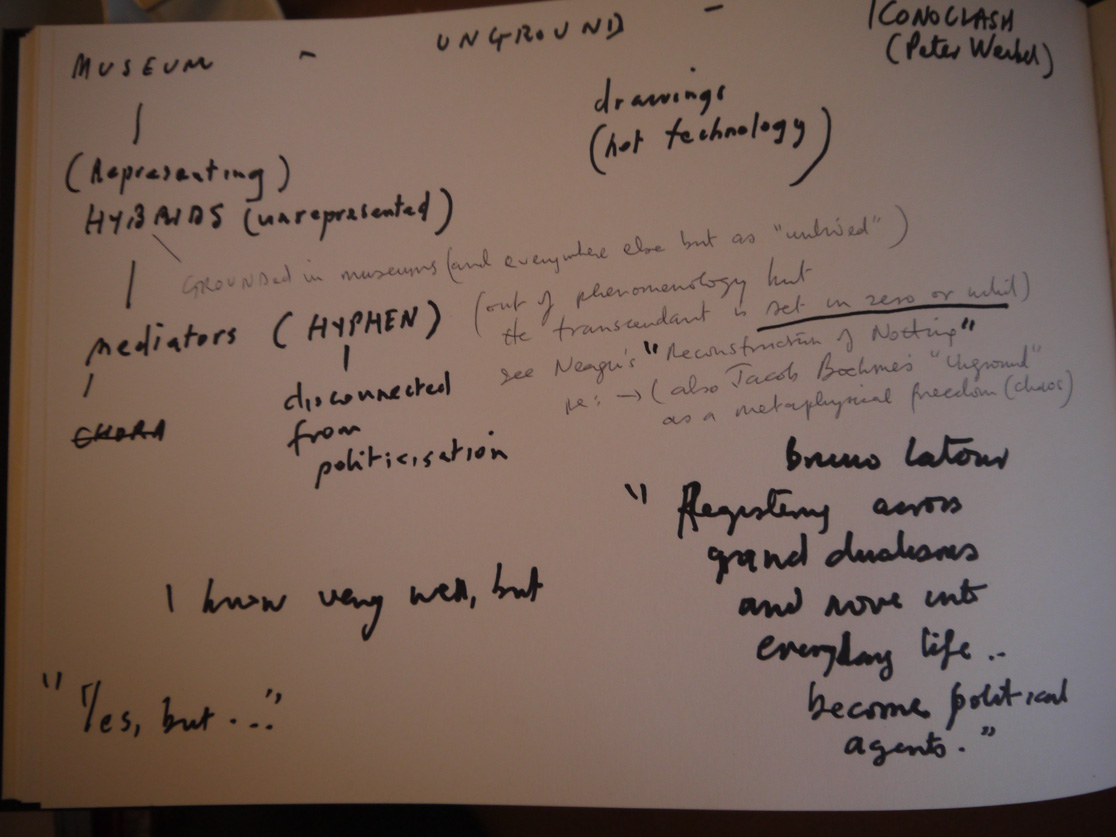 MUSEUM - UNGROUND - ICONOCLASH
(Peter Weibel)
drawings
(hot technology)
(Representing)
HYBRIDS (unrepresented)
GROUNDED in museums (and everywhere else but as "unlived")
mediators (HYPHEN)
(out of phenomenology but
the transcendant is set in zero or nihil)
see Neagu's "Reconstruction of Nothing"
re: → (also Jacob Boehme's "Unground"
as a metaphysical freedom (chaos)
disconnected
from
politicisation
CHORA
bruno latour
"Registering across
grand dualisms
and move into
everyday life ..
become political
agents."
I know very well, but
"Yes, but ..."